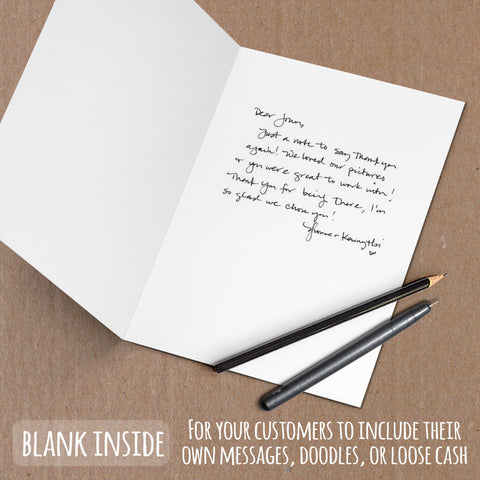 Dear Jonas,
Just a note to say Thank you
again! We loved our pictures
or you were great to work with!
Thank you for being There, I'm
so glad we chose you!
BLANK INSIDE
FOR YOUR CUSTOMERS TO INCLUDE THEIR
OWN MESSAGES, DOODLES, OR LOOSE CASH